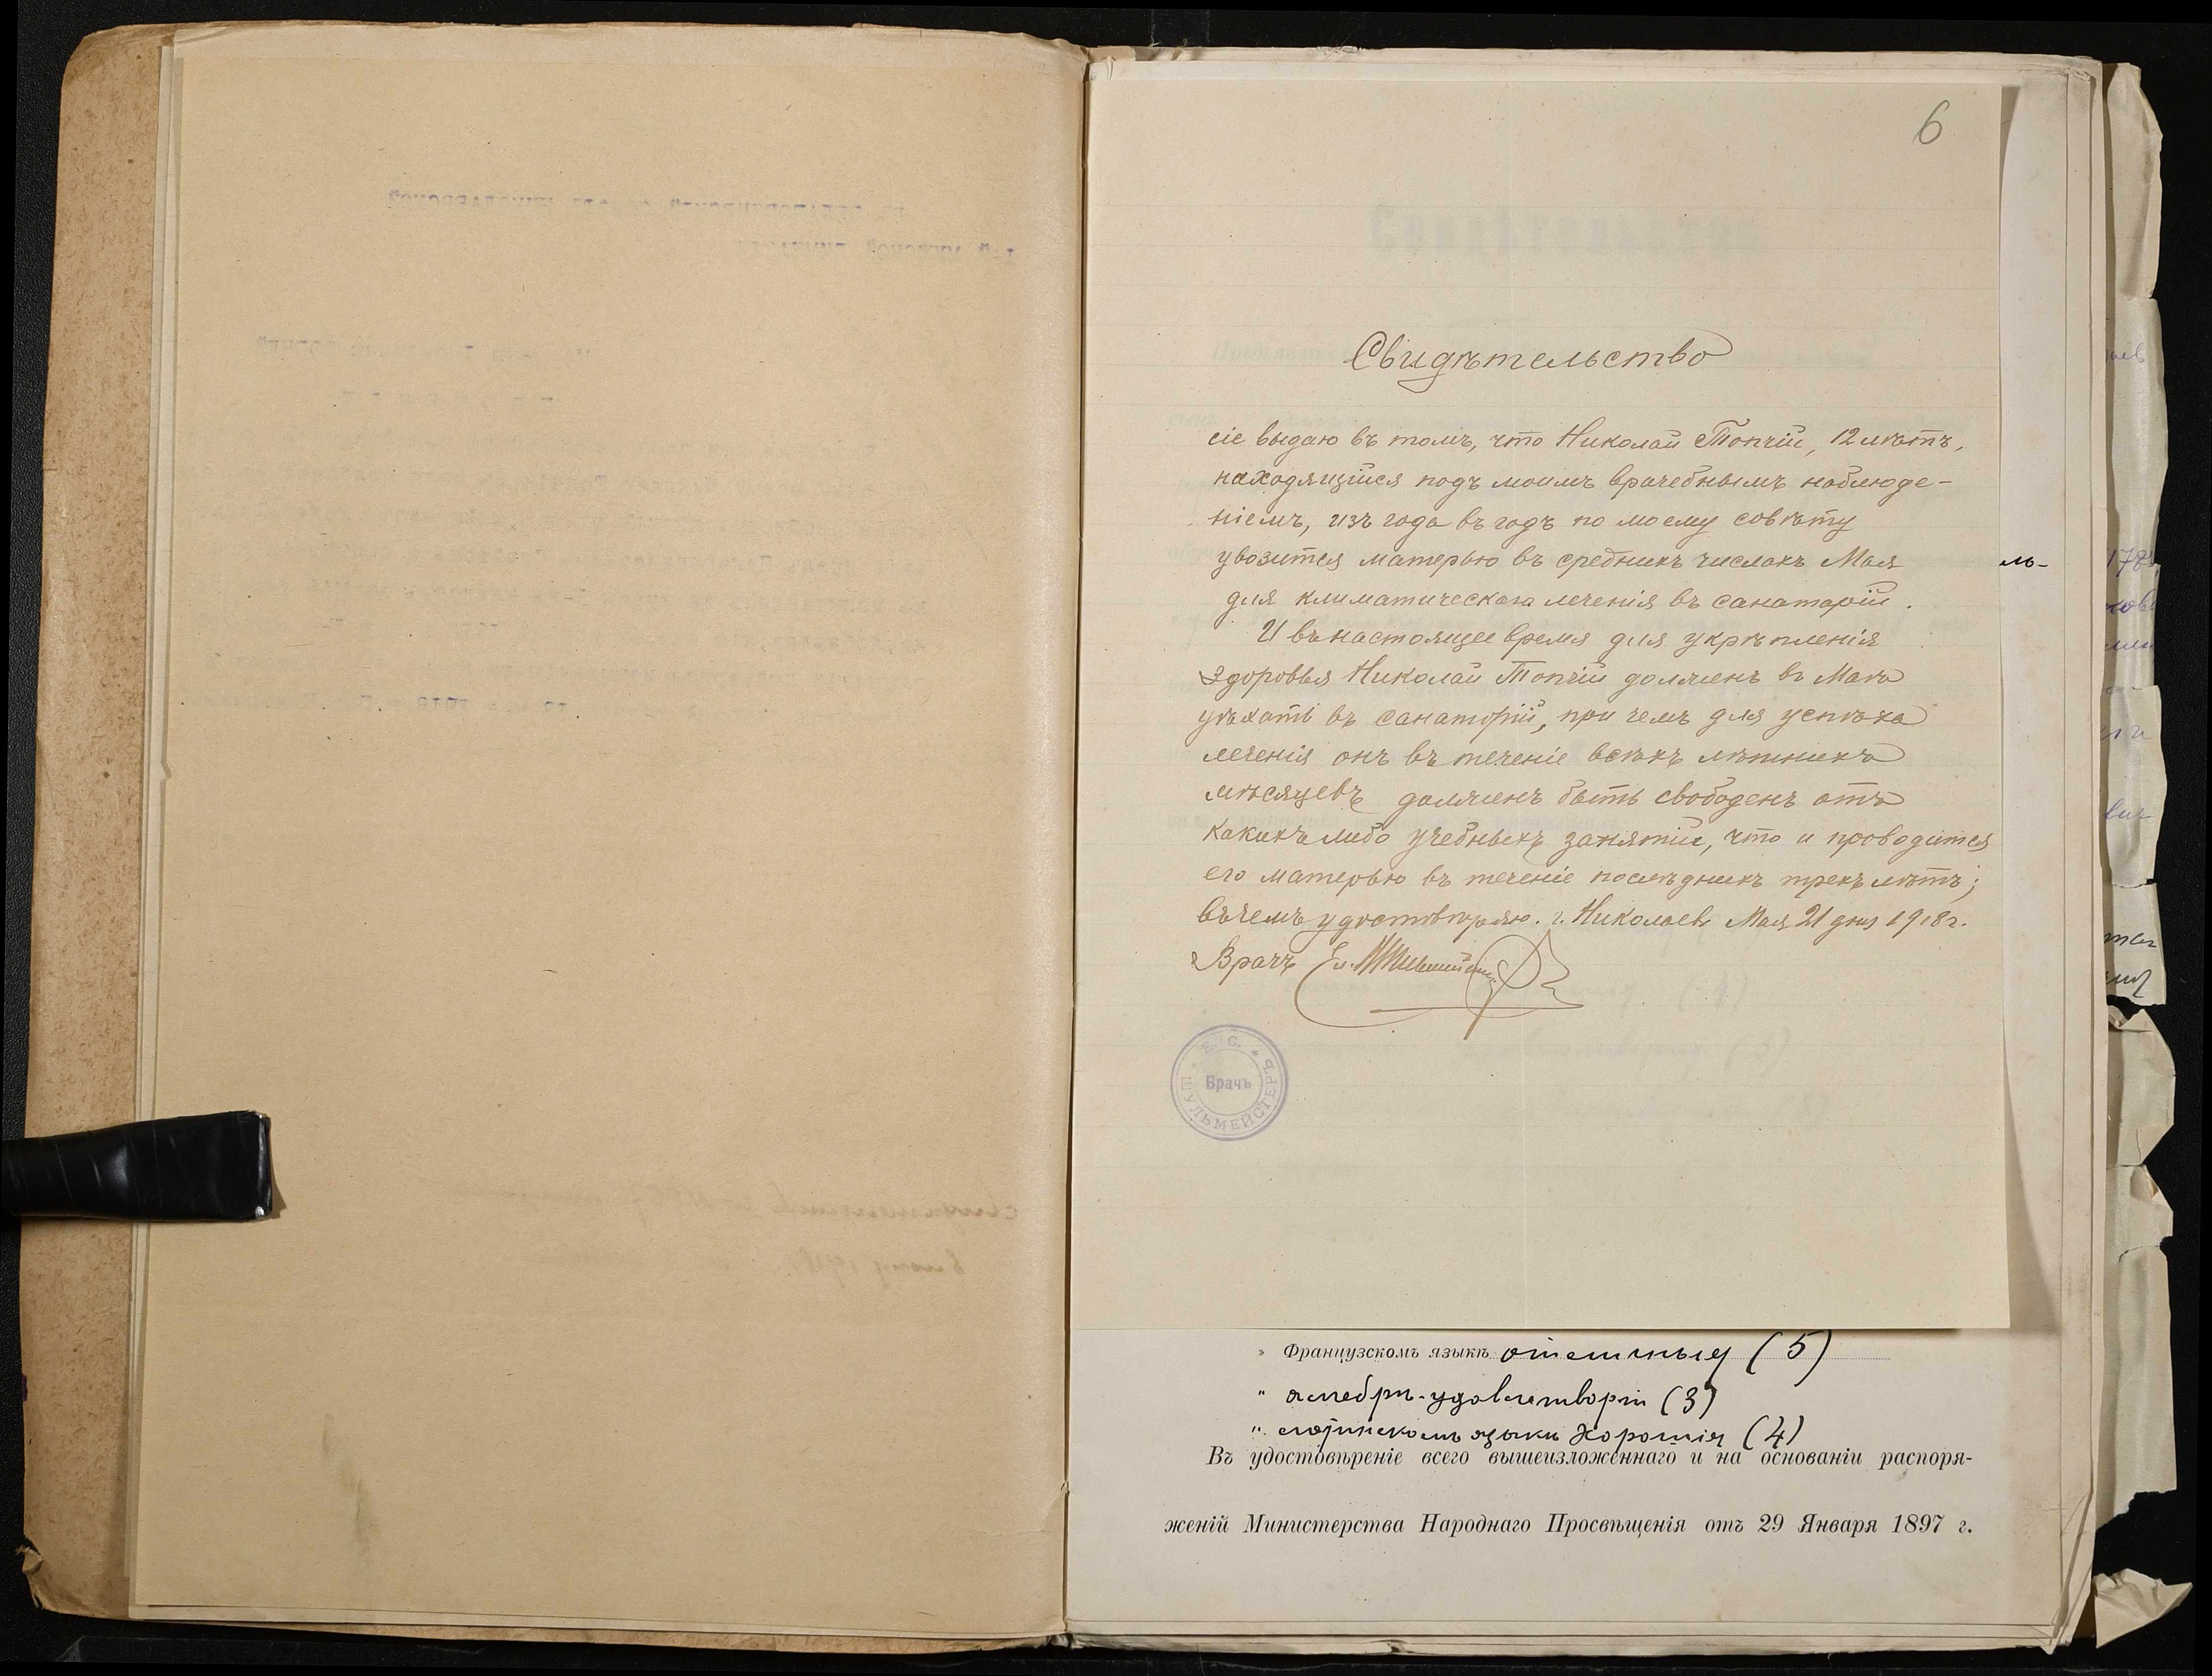 6
Свидѣтельство
сіе выдаю въ томъ, что Николай Топчій, 12 лѣтъ,
находящійся подъ моимъ врачебнымъ наблюде-
ніемъ, изъ года въ годъ по моему совѣту
увозится матерью въ среднихъ числахъ Мая
для климатическаго леченія въ санаторій.
И въ настоящее время для укрѣпленія
здоровья Николай Топчій долженъ въ Маѣ
уѣхать въ санаторій, при чемъ для успѣха
леченія онъ въ теченіе всѣхъ лѣтнихъ
мѣсяцевъ долженъ быть свободенъ отъ
какихъ либо учебныхъ занятій, что и проводится
его матерью въ теченіе послѣднихъ трехъ лѣтъ;
въ чемъ удостовѣряю. г. Николаевъ Мая 21 дня 1918 г.
Врачъ
Е. С. ШУЛЬМЕЙСТЕРЪ
Врачъ
" Французскомъ языкѣ отличныя (5)
" алгебрѣ - удовлетворит (3)
" латинскомъ языкѣ хорошія (4)
Въ удостовѣреніе всего вышеизложеннаго и на основаніи распоря-
женій Министерства Народнаго Просвѣщенія отъ 29 Января 1897 г.